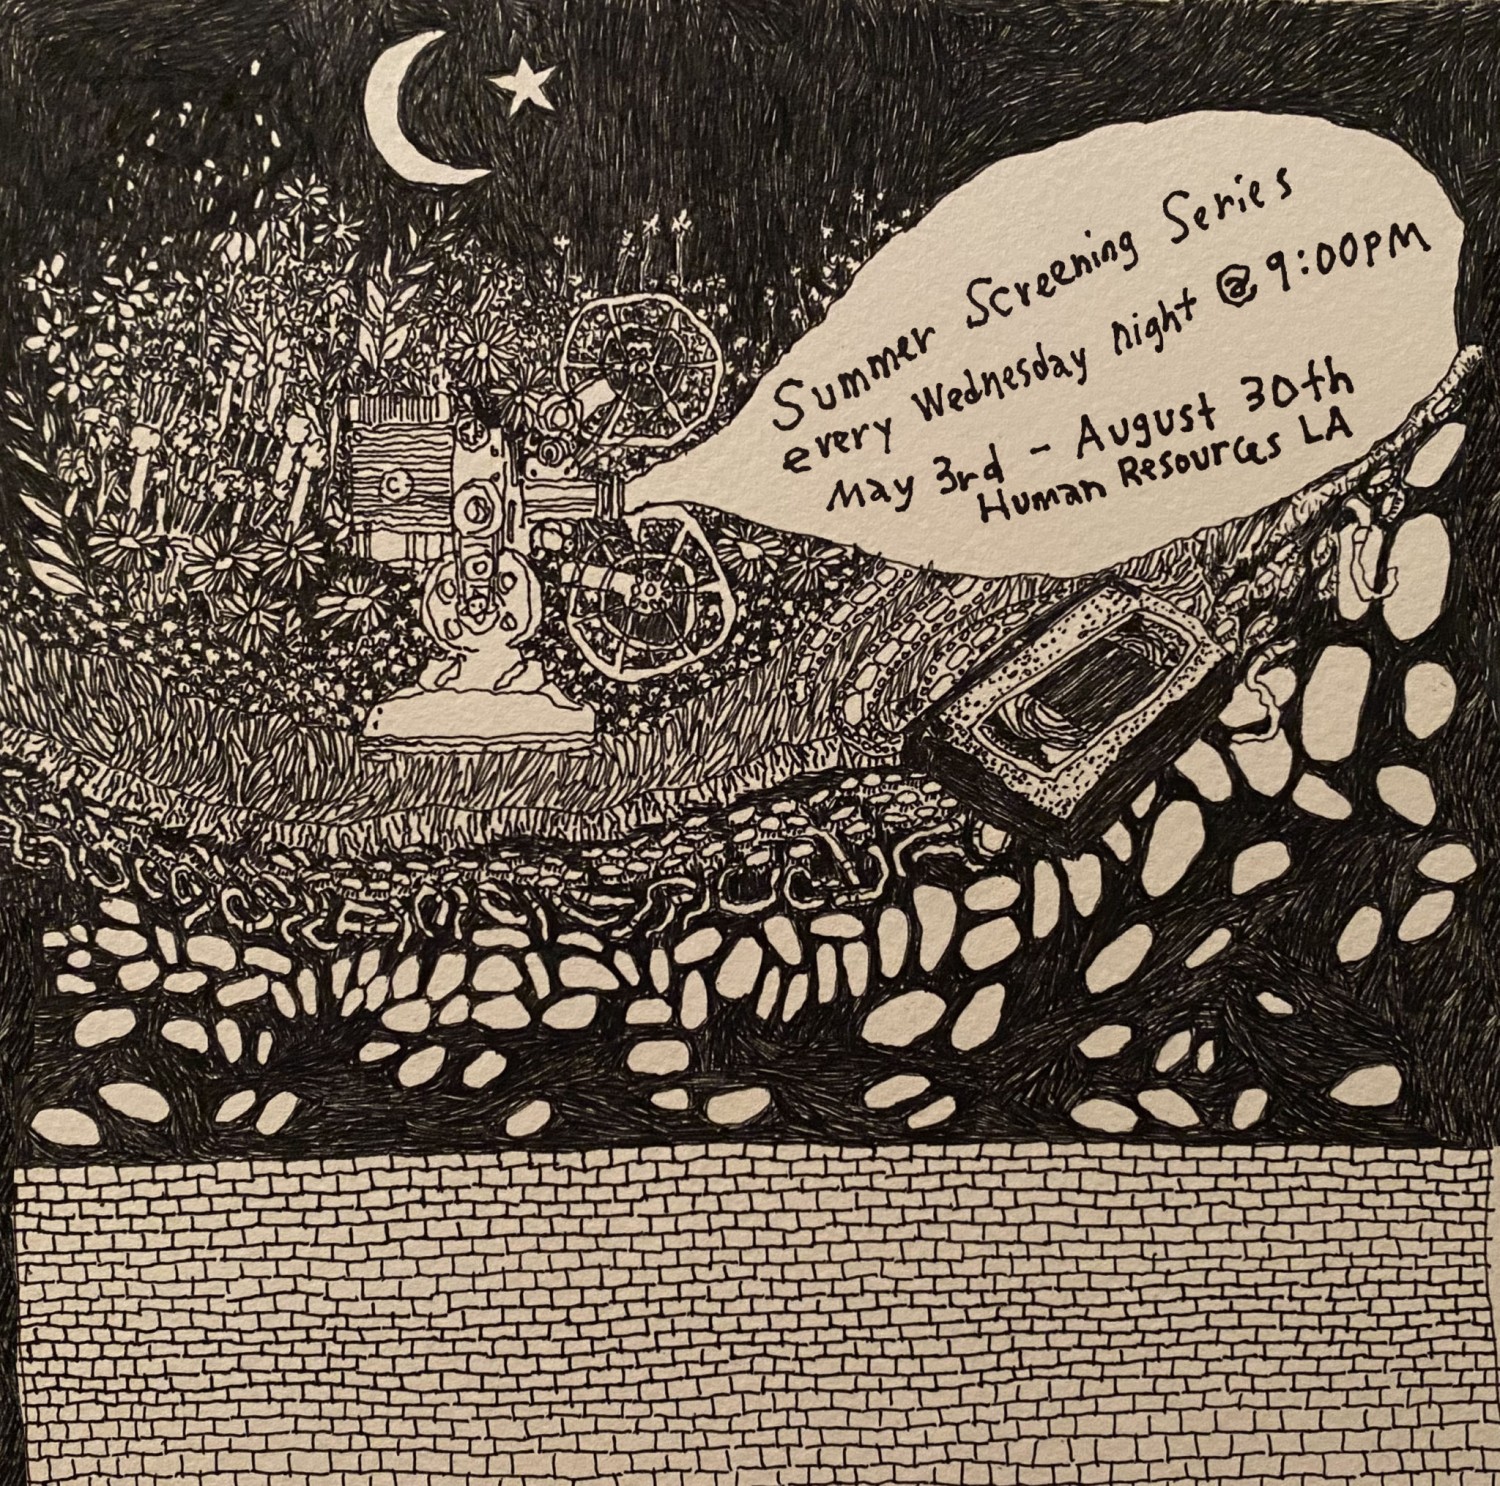 Summer Screening Series
every Wednesday night @ 9:00PM
May 3rd - August 30th
Human Resources LA